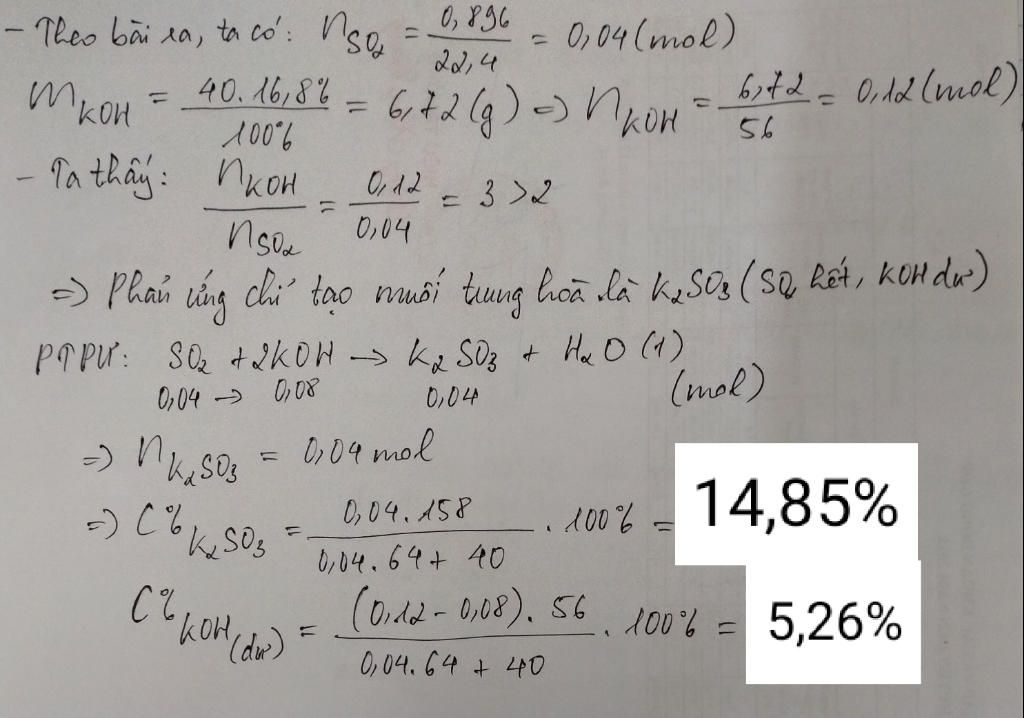 - Theo bài ra, ta có: nSO2 = 0,896/22,4 = 0,04 (mol)
mKOH = 40.16,8%/100% = 6,72 (g) => nKOH = 6,72/56 = 0,12 (mol)
- Ta thấy: nKOH/nSO2 = 0,12/0,04 = 3 > 2
=> Phản ứng chỉ tạo muối trung hoà là K2SO3 (SO2 hết, KOH dư)
PTPƯ: SO2 + 2KOH → K2SO3 + H2O (1)
0,04 → 0,08 0,04 (mol)
=> nK2SO3 = 0,04 mol
=> C%K2SO3 = 0,04.158/0,04.64 + 40 . 100% = 14,85%
C%KOH(dư) = (0,12 - 0,08).56/0,04.64 + 40 . 100% = 5,26%